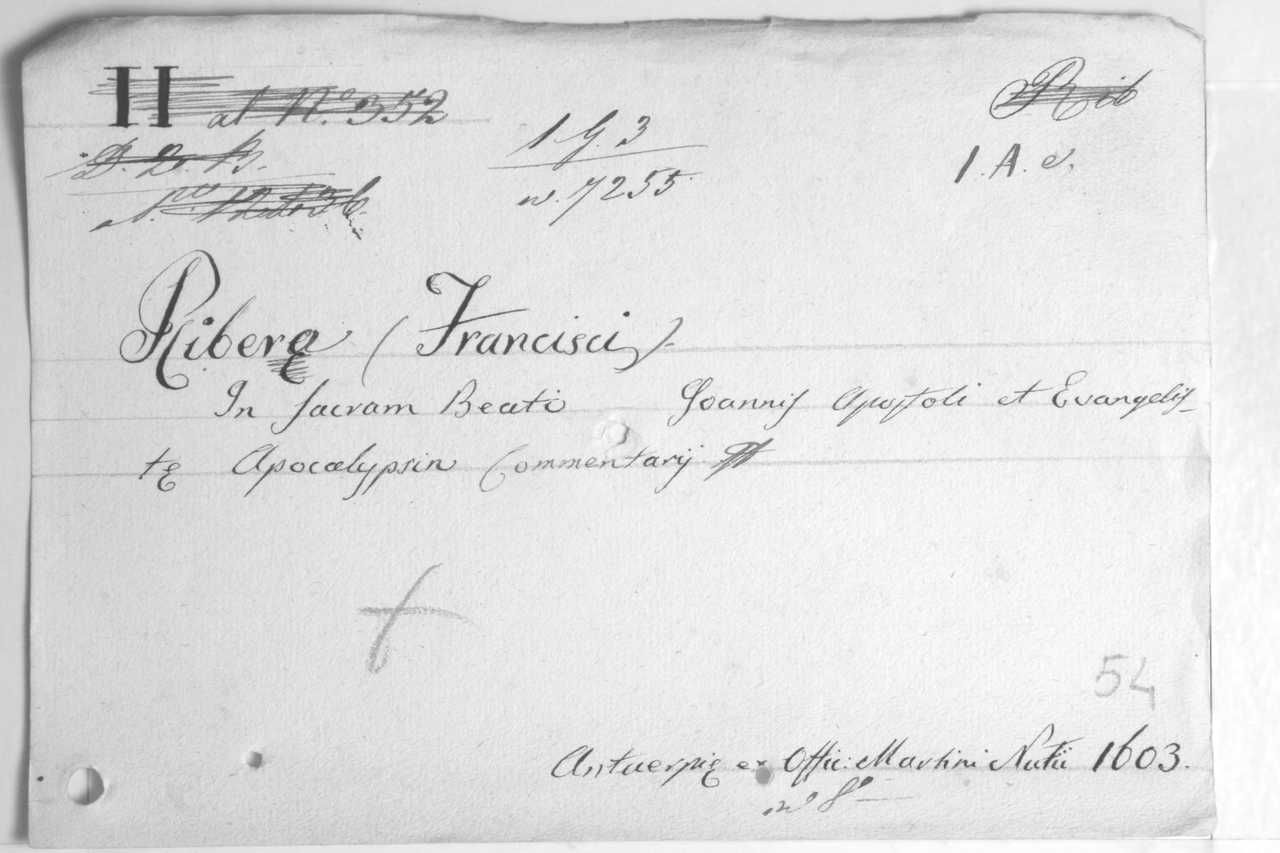 H ad N.º 352
Rib
1 G. 3
D. D. B.
w. 7255
1. A. e.
Riberę (Francisci)
In sacram Beati Joannis Apostoli et Evangelis-
tę Apocalypsin Commentarij
54
Antuerpię ex Offic: Martini Nutii 1603.
in 8º